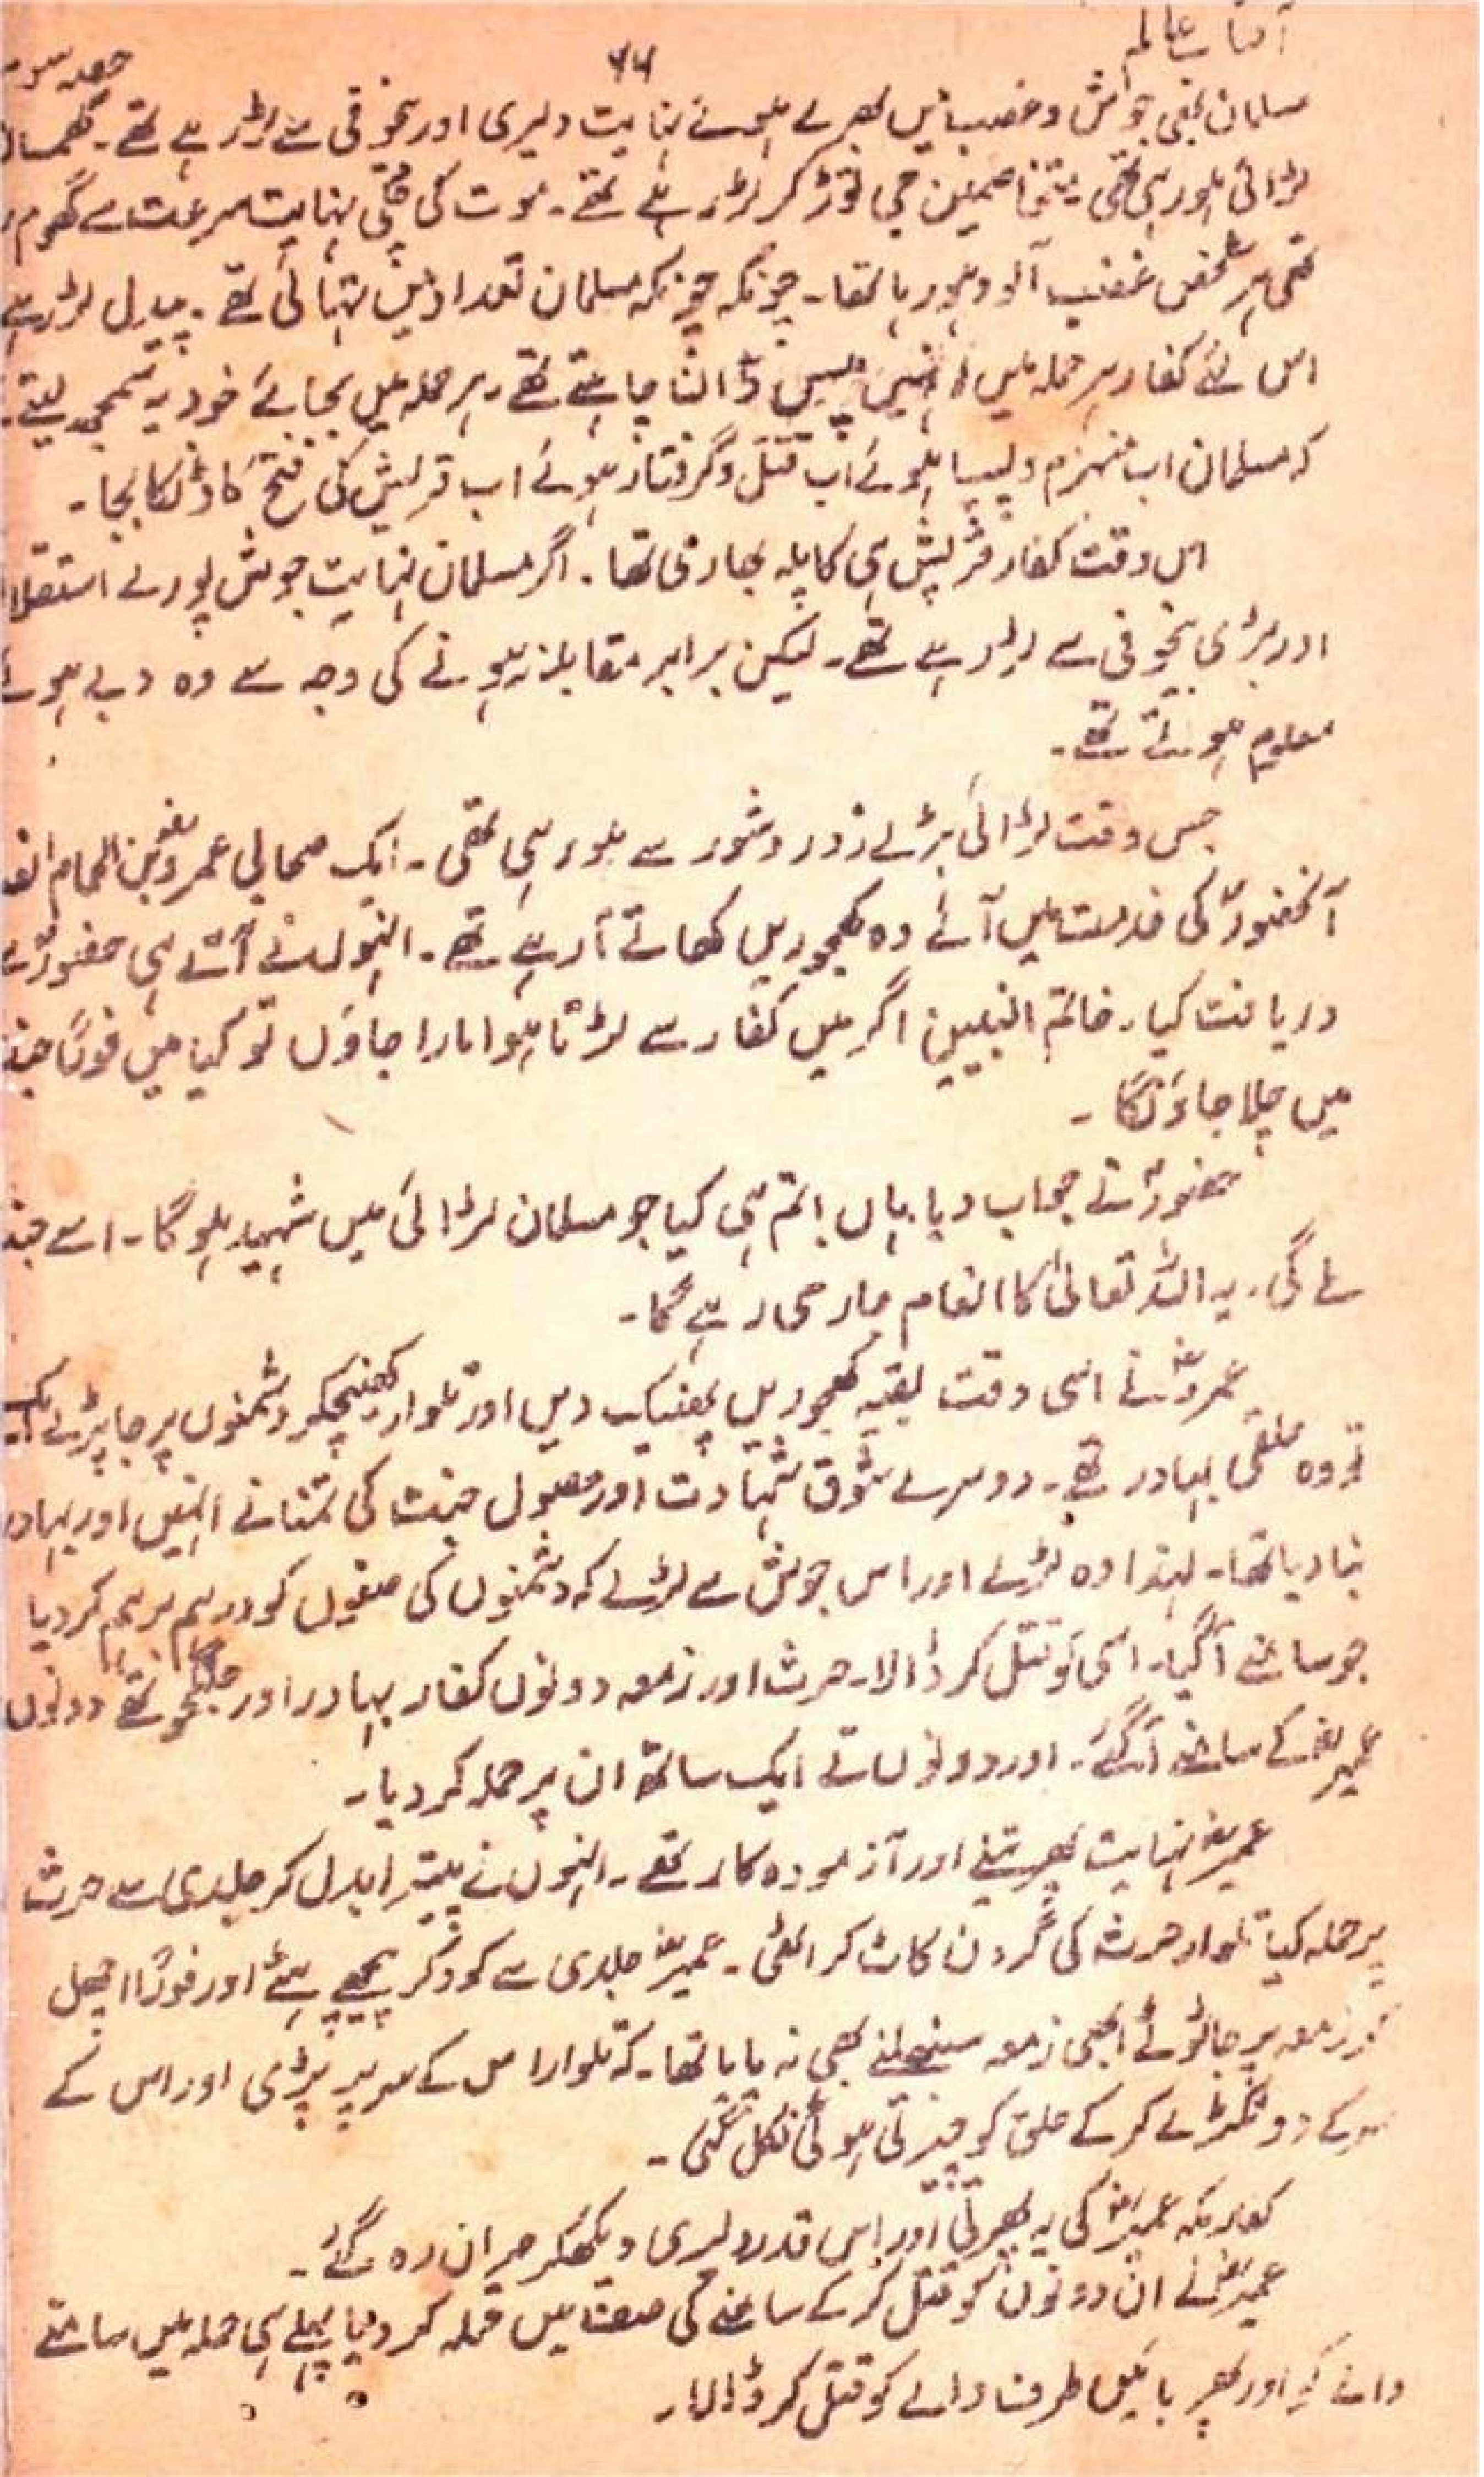 آفتاب عالم
۶۶
حصہ سو
مسلمان بھی جوش و غضب میں بھرے ہوئے نہایت دلیری اور بیخوفی سے لڑ رہے تھے۔ گھمسان
لڑائی ہو رہی تھی۔ متخاصمین جی توڑ کر لڑ رہے تھے۔ موت کی چکی نہایت سرعت سے گھوم ر
تھی ہر شخص غضب آلود ہو رہا تھا۔ چونکہ چونکہ مسلمان تعداد میں تہائی تھے۔ پیدل لڑ رہے
اس لئے کفار ہر حملہ میں انہیں پیس ڈالنا چاہتے تھے ہر حملہ میں بجائے خود یہ سمجھ لیتے
کہ مسلمان اب منہزم و پسپا ہوئے اب قتل و گرفتار ہوئے اب قریش کی فتح کا ڈنکا بجا۔
اس وقت کفار قریش ہی کا پلہ بھاری تھا۔ اگر مسلمان نہایت جوش پورے استقلا
اور بڑی بیخوفی سے لڑ رہے تھے۔ لیکن برابر مقابلہ نہ ہونے کی وجہ سے وہ دبے ہوئے
معلوم ہوتے تھے۔
جس وقت لڑائی بڑے زور و شور سے ہو رہی تھی۔ ایک صحابی عمروؓ بن الحمام انص
آنحضورؐ کی خدمت میں آئے وہ کھجوریں کھاتے آ رہے تھے۔ انہوں نے آتے ہی حضورؐ سے
دریافت کیا۔ خاتم النبیین اگر میں کفار سے لڑتا ہوا مارا جاؤں تو کیا میں فوراً جنت
میں چلا جاؤنگا۔
حضورؐ نے جواب دیا ہاں! تم ہی کیا جو مسلمان لڑائی میں شہید ہوگا۔ اسے جنت
ملے گی۔ یہ اللہ تعالیٰ کا انعام جاری رہے گا۔
عمروؓ نے اسی وقت بقیہ کھجوریں پھینک دیں اور تلوار کھینچکر دشمنوں پر جا پڑے ایک
تو وہ خلقی بہادر تھے۔ دوسرے شوق شہادت اور حصول جنت کی تمنا نے انہیں اور بہادر
بنا دیا تھا۔ لہٰذا وہ لڑے اور اس جوش سے لڑے کہ دشمنوں کی صفوں کو درہم برہم کر دیا
جو سامنے آگیا۔ اسی کو قتل کر ڈالا۔ حرث اور زمعہ دونوں کفار بہادر اور جنگجو تھے دونوں
عمیرؓ کے سامنے آگئے۔ اور دونوں نے ایک ساتھ ان پر حملہ کر دیا۔
عمیرؓ نہایت پھرتیلے اور آزمودہ کار تھے۔ انہوں نے پینترا بدل کر جلدی سے حرث
پر حملہ کیا تلوار حرث کی گردن کاٹ کر اٹھی۔ عمیرؓ جلدی سے کود کر پیچھے ہٹے اور فوراً اچھل
کر زمعہ پر جا ٹوٹے ابھی زمعہ سنبھلنے بھی نہ پایا تھا۔ کہ تلوار اس کے سر پر پڑی اور اس کے
سر کے دو ٹکڑے کر کے حلق کو چیرتی ہوئی نکل گئی۔
کفار مکہ عمیرؓ کی یہ پھرتی اور اس قدر دلیری دیکھکر حیران رہ گئے۔
عمیرؓ نے ان دونوں کو قتل کر کے سامنے کی صف میں حملہ کر دیا پہلے ہی حملہ میں سامنے
والے کو اور پھر بائیں طرف والے کو قتل کر ڈالا۔